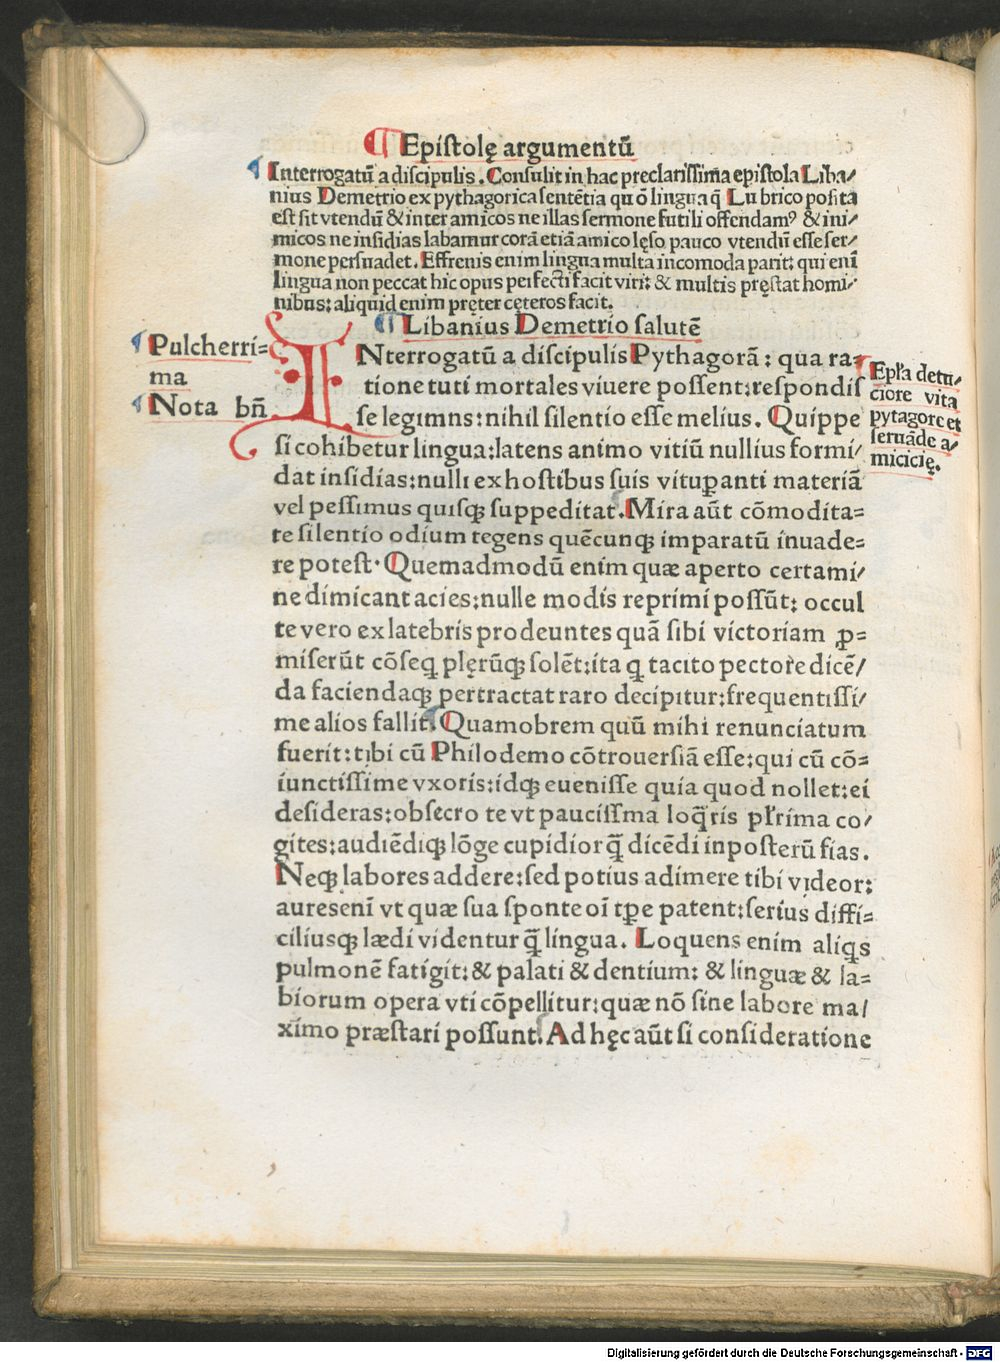 ¶ Epistolę argumentū
¶ Interrogatū a discipulis. Consulit in hac preclarissima epistola Liba⸗
nius Demetrio ex pythagorica sentētia quō lingua q̄ Lubrico posita
est sit vtendū & inter amicos ne illas sermone futili offendamꝰ & ini⸗
micos ne insidias labamur corā etiā amico lęso pauco vtendū esse ser⸗
mone persuadet. Effrenis enim lingua multa incomoda parit: qui enī
lingua non peccat hic opus perfecti facit viri: & multis pręstat homi⸗
nibus: aliquid enim pręter cęteros facit.
¶ Libanius Demetrio salutē
Pulcherri=
ma
Nota bñ
INterrogatū a discipulis Pythagorā: qua ra⸗
tione tuti mortales viuere possent: respondis
se legimns: nihil silentio esse melius. Quippe
si cohibetur lingua: latens animo vitiū nullius formi⸗
dat insidias: nulli ex hostibus suis vituꝑanti materiā
vel pessimus quisqꝫ suppeditat. Mira aūt cōmodita=
te silentio odium tegens quēcunqꝫ imparatū inuade=
re potest. Quemadmodū enim quæ aperto certami⸗
ne dimicant acies: nulle modis reprimi possūt: occul
te vero ex latebris prodeuntes quā sibi victoriam ꝓ=
miserūt cōseq̄ plęrūqꝫ solēt: ita q̄ tacito pectore dicē⸗
da faciendaqꝫ pertractat raro decipitur: frequentissi⸗
me alios fallit. Quamobrem quū mihi renunciatum
fuerit: tibi cū Philodemo cōtrouersiā esse: qui cū cō=
iunctissime vxoris: idqꝫ euenisse quia quod nollet: ei
desideras: obsecro te vt paucissma loq̄ris płrima co⸗
gites: audiēdiqꝫ lōge cupidior q̄ dicēdi inposterū fias.
Neqꝫ labores addere: sed potius adimere tibi videor:
aures enī vt quæ sua sponte oī tꝑe patent: serius diffi=
ciliusqꝫ lædi videntur q̄ lingua. Loquens enim aliqs
pulmonē fatigit: & palati & dentium: & linguæ & la=
biorum opera vti cōpellitur: quæ nō sine labore ma⸗
ximo præstari possunt. Ad hęc aūt si consideratione
Epła detu⸗
ciore vita
pytagore et
seruāde a⸗
micicię.
Digitalisierung gefördert durch die Deutsche Forschungsgemeinschaft - DFG